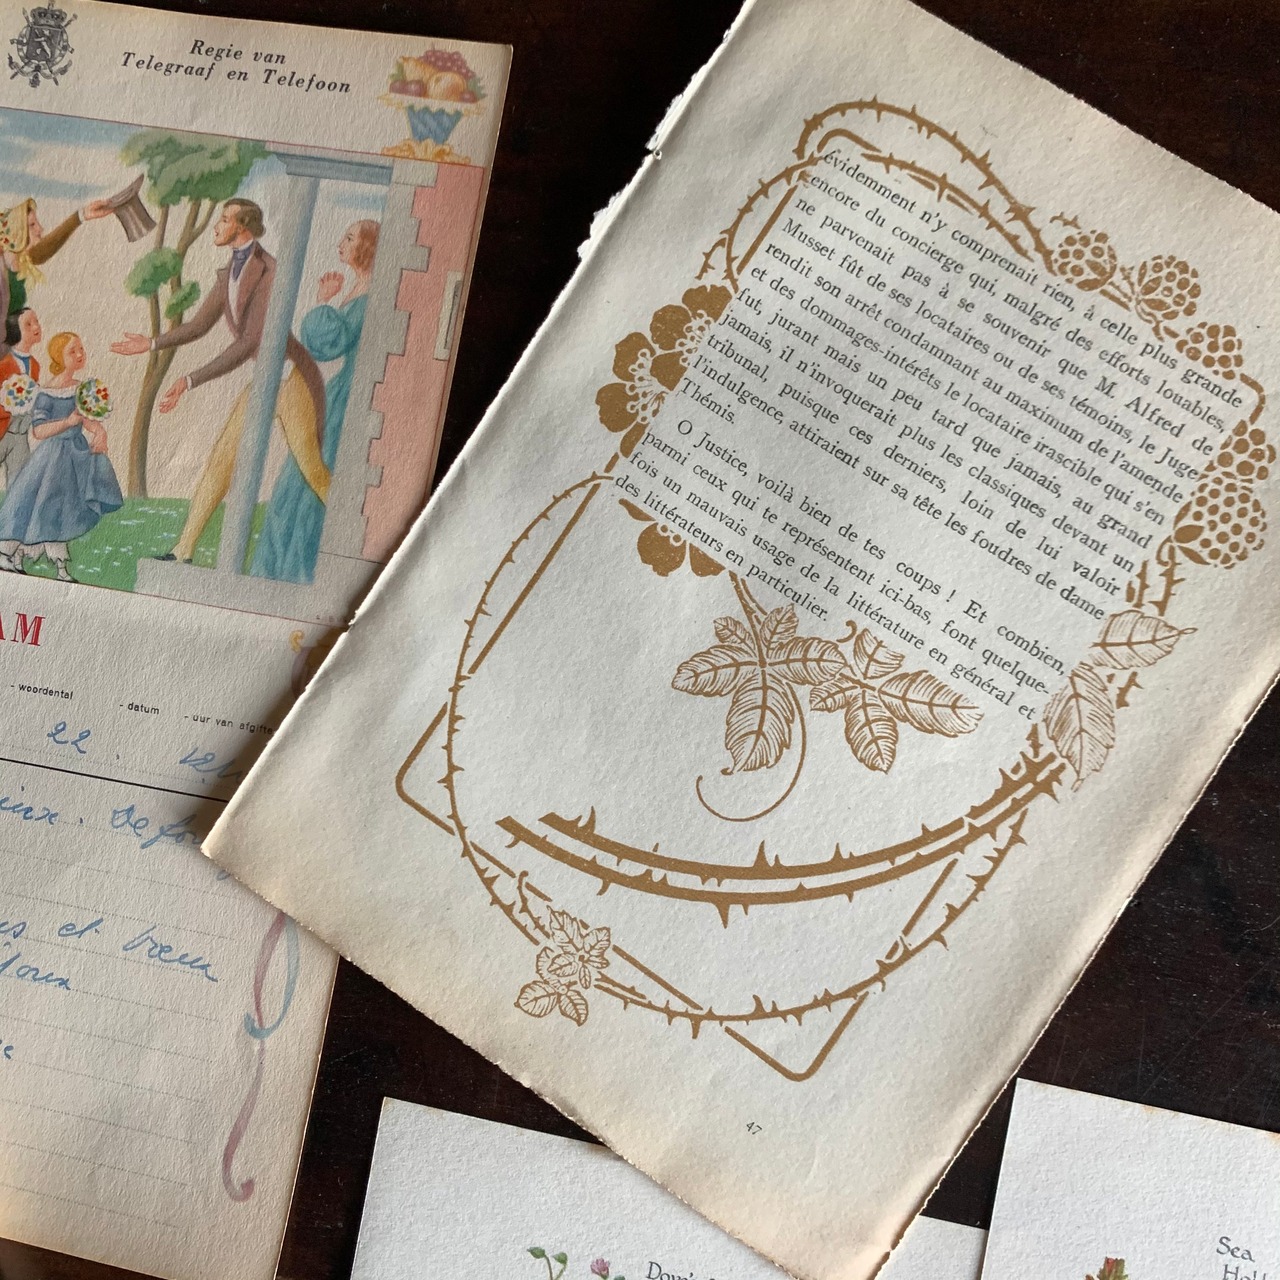 Regie van
Telegraaf en Telefoon
AM
- woordental
- datum
- uur van afgifte
22
et vœux
évidemment n'y comprenait rien, à celle plus grande
encore du concierge qui, malgré des efforts louables,
ne parvenait pas à se souvenir que M. Alfred de
Musset fût de ses locataires ou de ses témoins, le Juge
rendit son arrêt condamnant au maximum de l'amende
et des dommages-intérêts le locataire irascible qui s'en
fut, jurant mais un peu tard que jamais, au grand
jamais, il n'invoquerait plus les classiques devant un
tribunal, puisque ces derniers, loin de lui valoir
l'indulgence, attiraient sur sa tête les foudres de dame
Thémis.
O Justice, voilà bien de tes coups ! Et combien,
parmi ceux qui te représentent ici-bas, font quelque-
fois un mauvais usage de la littérature en général et
des littérateurs en particulier.
47
Sea